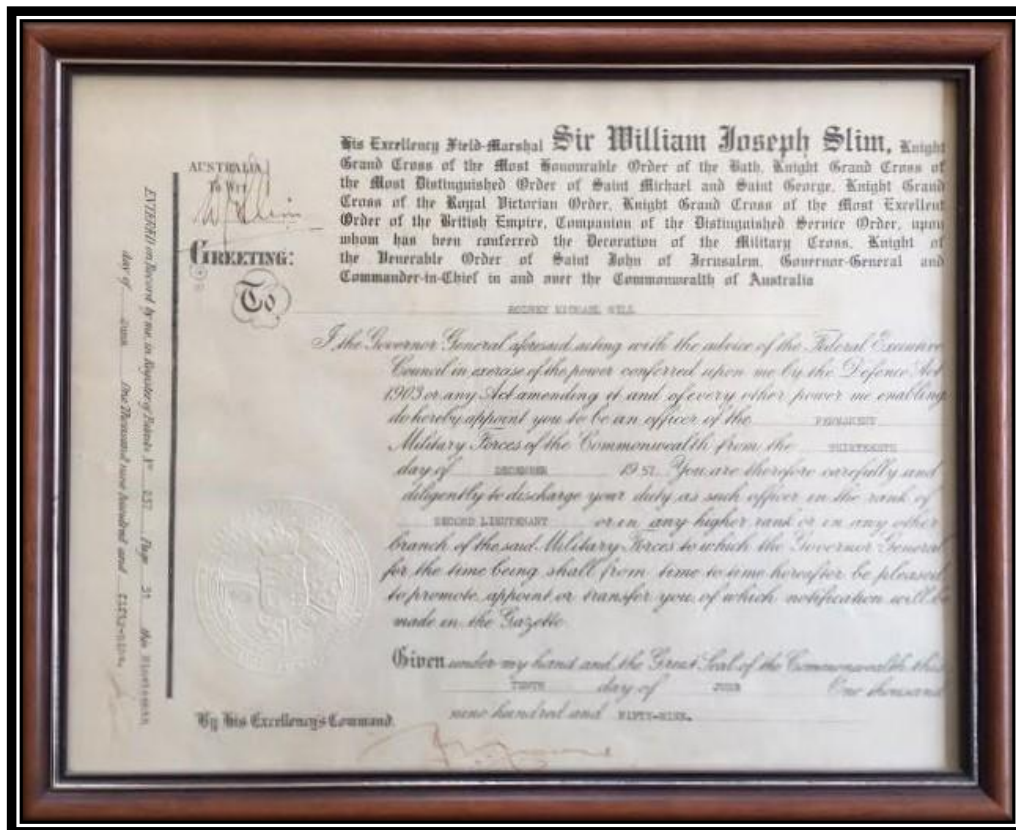 His Excellency Field-Marshal Sir William Joseph Slim, Knight
Grand Cross of the Most Honourable Order of the Bath, Knight Grand Cross of
the Most Distinguished Order of Saint Michael and Saint George, Knight Grand
Cross of the Royal Victorian Order, Knight Grand Cross of the Most Excellent
Order of the British Empire, Companion of the Distinguished Service Order, upon
whom has been conferred the Decoration of the Military Cross, Knight of
the Venerable Order of Saint John of Jerusalem, Governor-General and
Commander-in-Chief in and over the Commonwealth of Australia
AUSTRALIA
To Wit
GREETING:
To
RODNEY MICHAEL
I the Governor General aforesaid acting with the advice of the Federal Executive
Council in exercise of the power conferred upon me by the Defence Act
1903 or any Act amending it and of every other power me enabling
do hereby appoint you to be an officer of the PERMANENT
Military Forces of the Commonwealth from the THIRTEENTH
day of DECEMBER 1957. You are therefore carefully and
diligently to discharge your duty as such officer in the rank of
SECOND LIEUTENANT or in any higher rank or in any other
branch of the said Military Forces to which the Governor General
for the time being shall from time to time hereafter be pleased
to promote, appoint or transfer you, of which notification will be
made in the Gazette.
Given under my hand and the Great Seal of the Commonwealth this
TENTH day of JUNE One thousand
nine hundred and FIFTY-NINE.
By His Excellency's Command.
ENTERED on Record by me, in Register of Patents No 237 Page 39 this Nineteenth
day of June One Thousand nine hundred and FIFTY-NINE.